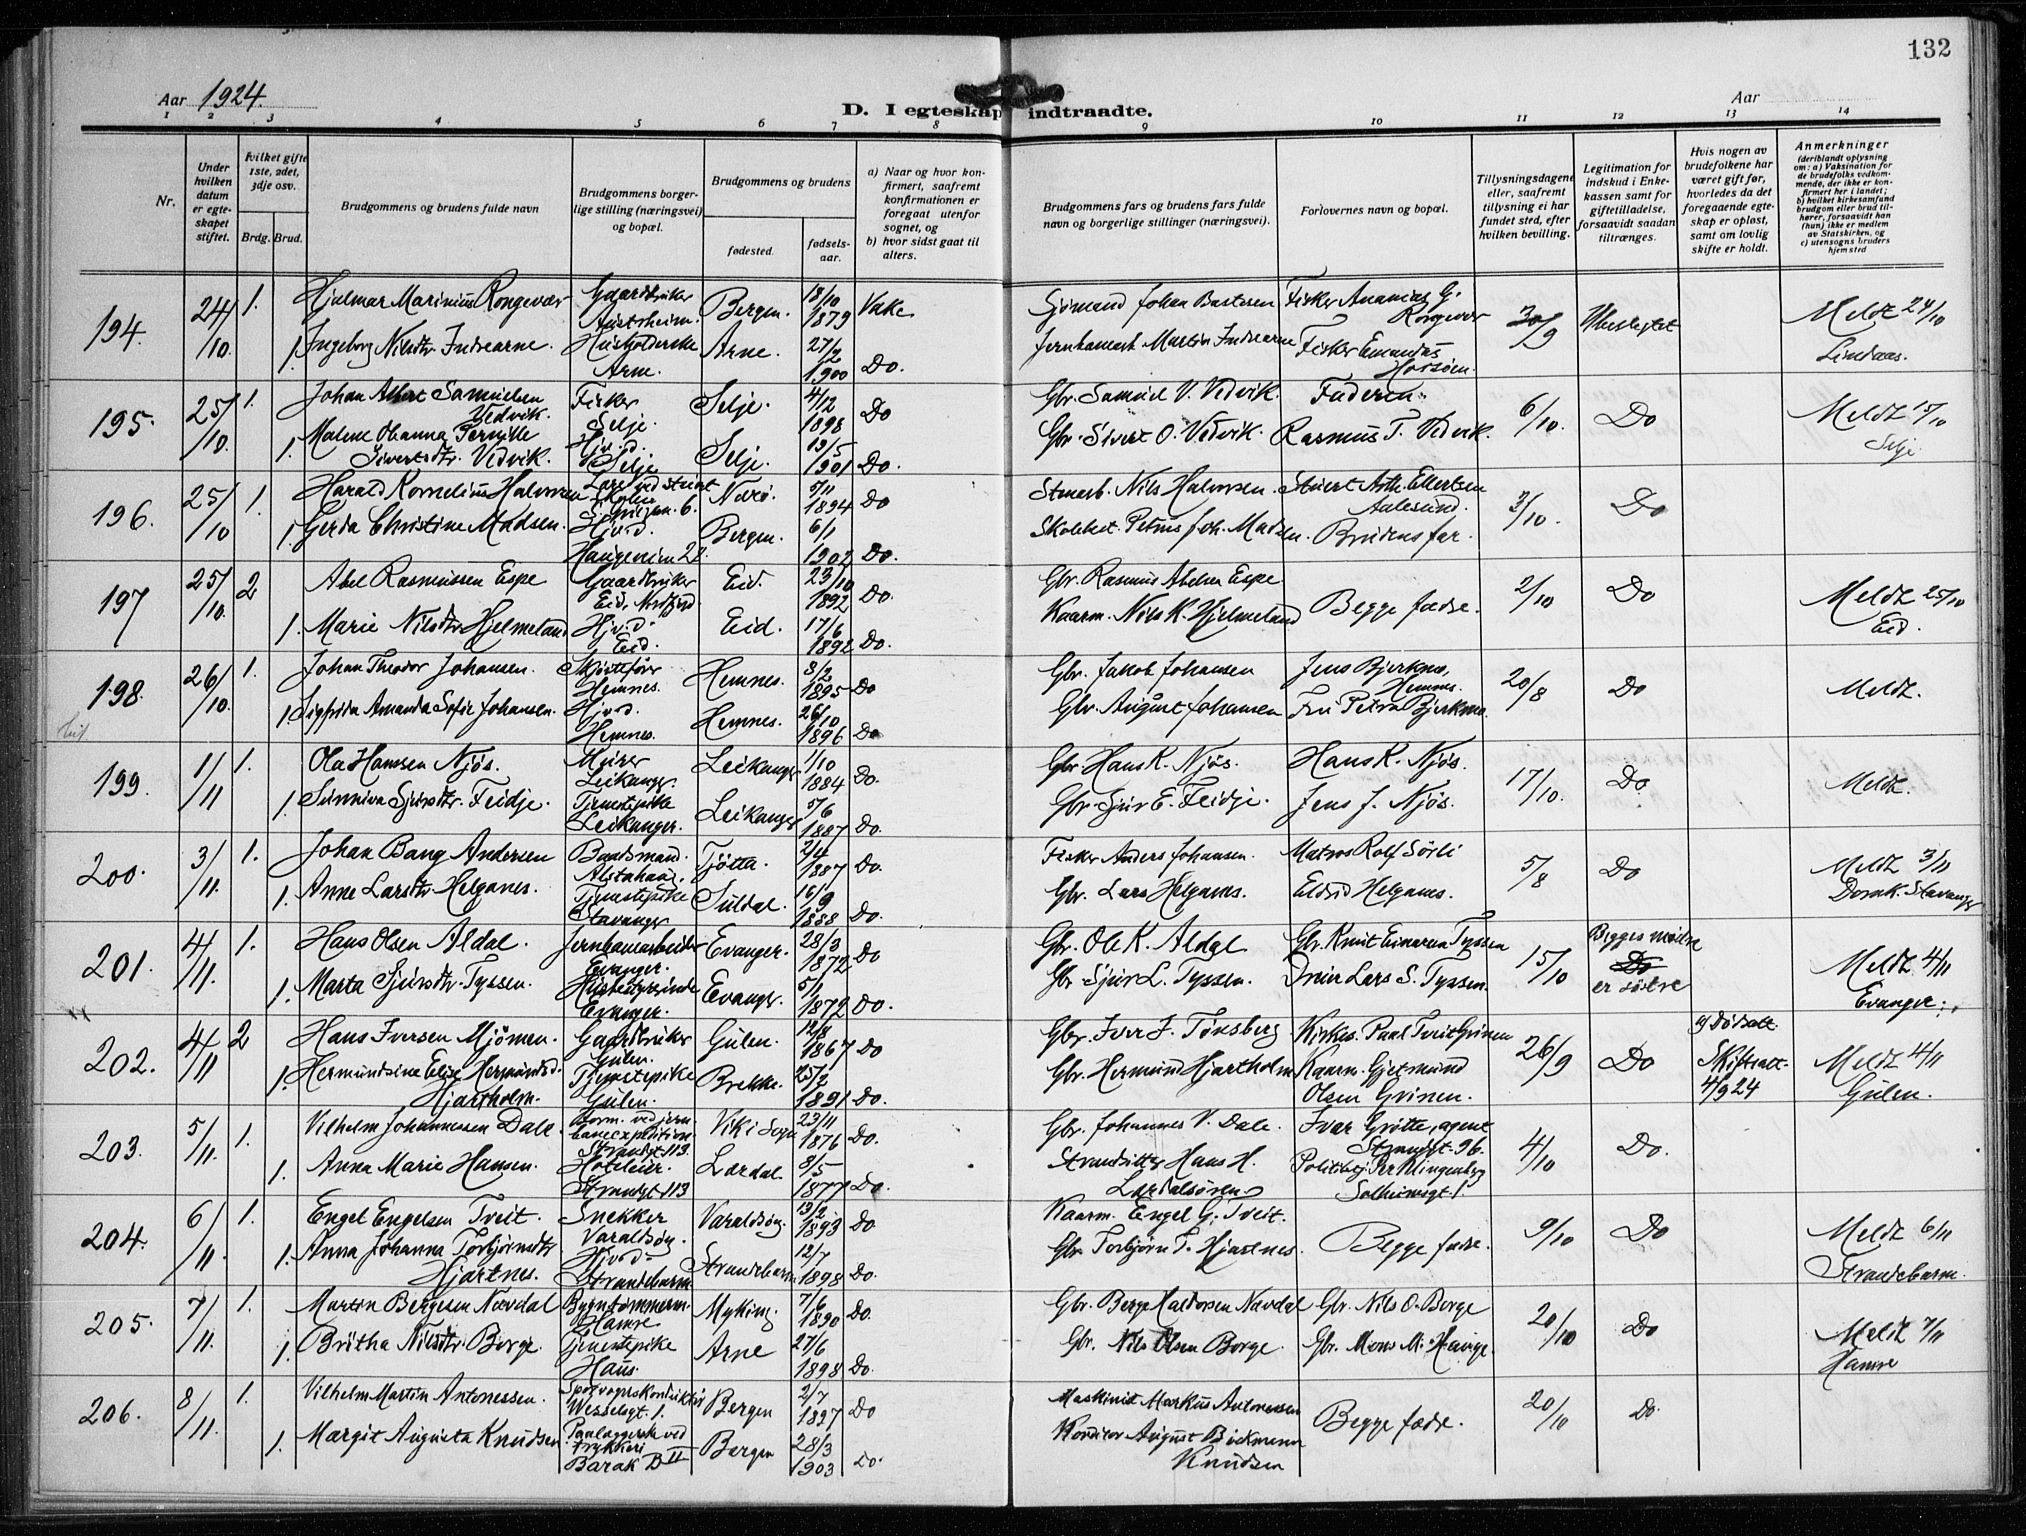 132
Aar 1924.
Aar
D. I egteskap indtraadte.
1 2 3 4 5 6 7 8 9 10 11 12 13 14
Nr.
Under hvilken datum er egteskapet stiftet.
Hvilket gifte 1ste, 2det, 3dje osv.
Brdg. Brud.
Brudgommens og brudens fulde navn
Brudgommens borgerlige stilling (næringsvei) og bopæl.
Brudgommens og brudens
fødested.
fødselsaar.
a) Naar og hvor konfirmert, saafremt konfirmationen er foregaat utenfor sognet, og
b) hvor sidst gaat til alters.
Brudgommens fars og brudens fars fulde navn og borgerlige stillinger (næringsvei).
Forlovernes navn og bopæl.
Tillysningsdagene eller, saafremt tillysning ei har fundet sted, efter hvilken bevilling.
Legitimation for indskud i Enkekassen samt for giftetilladelse, forsaavidt saadan tiltrænges.
Hvis nogen av brudefolkene har været gift før, hvorledes da det foregaaende egteskap er opløst, samt om lovlig skifte er holdt.
Anmerkninger (deriblandt oplysning om: a) Vaksination for de brudefolks vedkommende, der ikke er konfirmert her i landet; b) hvilket kirkesamfund brudgom eller brud tilhører, forsaavidt han (hun) ikke er medlem av Statskirken, og c) utensogns bruders hjemsted
194. 24/10. 1. Hjalmar Marinius Rongevær Gaardbruker Austrheim. Bergen. 18/10 1879
Sjömand Johan Bastesen Fisker Ananias G. Rongevær 30/9 Ubeslegtet Meldt 24/10 Lindaas.
1. Ingeborg Nilsdtr Indrearne. Husholderske Arne. Arne. 27/2 1900 Do.
Martin Indrearne Fisker
195. 25/10. 1. Johan Albert Samuelsen Vedvik. Fisker Selje. Selje. 4/12 1898 Do
Gbr. Samuel V. Vedvik. Faderen. 6/10. Do Meldt Selje.
1. Malene Ohanna Pernille Sivertsdtr. Vedvik. Hjv.d. Selje Selje. 13/5 1901 Do.
Gbr. Sivert O. Vedvik. Rasmus T. Vedvik.
196. 25/10 1. Harald Kornelius Halvorsen Nærö. 5/11 1894 Do
Nils Halvorsen. Ellertsen Aalesund. 3/10. Do
1. Gerda Christine Madsen. Hjv.d. Haugeveien 28. Bergen. 6/1 1902 Do.
Petrus Joh. Madsen. Brudens far.
197 25/10. 2 Abel Rasmussen Espe Gaardbruker Eid, Nordfjord. Eid. 23/10 1892 Do.
Gbr. Rasmus Abelsen Espe Begge fædre. 2/10 Do Meldt 25/10 Eid.
1. Marie Nilsdtr Hjelmeland Hjv.d. Eid. Eid. 17/6 1892 Do.
Kaarm. Nils K. Hjelmeland
198. 26/10. 1. Johan Theodor Johansen. Hemnes. Hemnes. 3/2 1895 Do
Gbr. Jakob Johansen Jens Bjerkmo, Hemnes. 20/8 Do Meldt.
1. Sigfrida Amanda Sofie Johansen. Hjv.d. Hemnes. Hemnes. 26/10 1896 Do
Gbr. August Johansen Fru Petra Bjerkmo.
199. 1/11 1. Ola Hansen Njøs. Murer Leikanger. Leikanger 1/10 1884 Do.
Gbr. Hans K. Njøs. Hans K. Njøs. 17/10. Do Meldt.
1. Sunniva Sjursdtr. Feidje. Tjenestepike Leikanger. Leikanger 5/6 1887 Do.
Gbr. Sjur E. Feidje. Jens J. Njøs.
200. 3/11. 1. Johan Bang Andersen Baadsmand. Alstahaug. Tjøtta. 2/4 1887 Do.
Fisker Anders Johansen. Matros Rolf Sörli 5/8 Do Meldt 3/11 Domk. Stavanger
1. Anne Larsdtr Helganes. Tjenestepike Stavanger Suldal. 16/9 1888 Do.
Gbr. Lars Helganes. Eldrid Helganes.
201. 4/11. 1. Hans Olsen Aldal. Jernbanearbeider Evanger. Evanger. 28/3 1872 Do
Gbr. Ole K. Aldal Gbr. Knut Einarsen Tyssen 15/10 Begges mödre er söstre Meldt 4/11 Evanger.
1. Marta Sjursdtr. Tyssen. Evanger. Evanger. 5/1 1872 Do.
Gbr Sjur L. Tyssen. Lars S. Tyssen.
202. 4/11 2 Hans Iversen Mjömen. Gaardbruker Gulen. Gulen. 12/8 1867 Do
Gbr. Iver J. Tønsberg Kirkes. Paal Tveit Grinen 26/9 Do Dödsatt. Skifteatt. 4/9 24 Meldt 4/11 Gulen.
1. Hermundsine Elise Hermundsd. Hjartholm. Tjenestepike Gulen. Brekke. 25/2 1891 Do.
Gbr. Hermund Hjartholm Kaarm. Gjetmund Olsen Grinen.
203. 5/11. 1. Vilhelm Johannessen Dale. Form. ved jernbaneexpedition Strandgt. 113 Vik i Sogn 23/11 1876 Do.
Gbr. Johannes V. Dale. Ivar Grötte, agent Strandgt. 96. 4/10 Do.
1. Anna Marie Hansen. Hoteleier. Strandgt 113 Lærdal 3/5 1877 Do.
Strandsitter Hans H. Lærdalsören Per Klingenberg Solheimsgt. 1
204. 6/11. 1. Engel Engelsen Tveit. Snekker Varaldsøy. Varaldsøy. 13/2 1893 Do
Kaarm. Engel G. Tveit. Begge fædre. 9/10 Do Meldt 6/11 Strandebarm.
1. Anna Johanna Torbjörnsdtr Hjartnes. Hjv.d. Strandebarm Strandebarm 12/7 1898 Do.
Gbr. Torbjörn T. Hjartnes.
205. 7/11. 1. Martin Bergesen Nævdal Bygntømmerm. Hamre Myking. 7/6 1890 Do.
Gbr. Berge Haldorsen Nævdal Gbr. Nils O. Borge 20/10 Do Meldt 7/11 Hamre
1. Britha Nilsdtr. Borge. Tjenestepike Haus. Arne 27/6 1898 Do.
Gbr. Nils Olsen Borge. Gbr. Mons M. Hauge.
206. 8/11. 1. Vilhelm Martin Antonessen. Sporvognskonduktör Wesselsgt. 1. Bergen 2/7 1897 Do
Maskinist Markus Antonessen Begge fædre. 20/10 Do.
1. Margit Augusta Knudsen Paalæggerske ved trykkeri Barak B II Bergen 28/3 1903 Do.
Konditor August Bickmann Knudsen